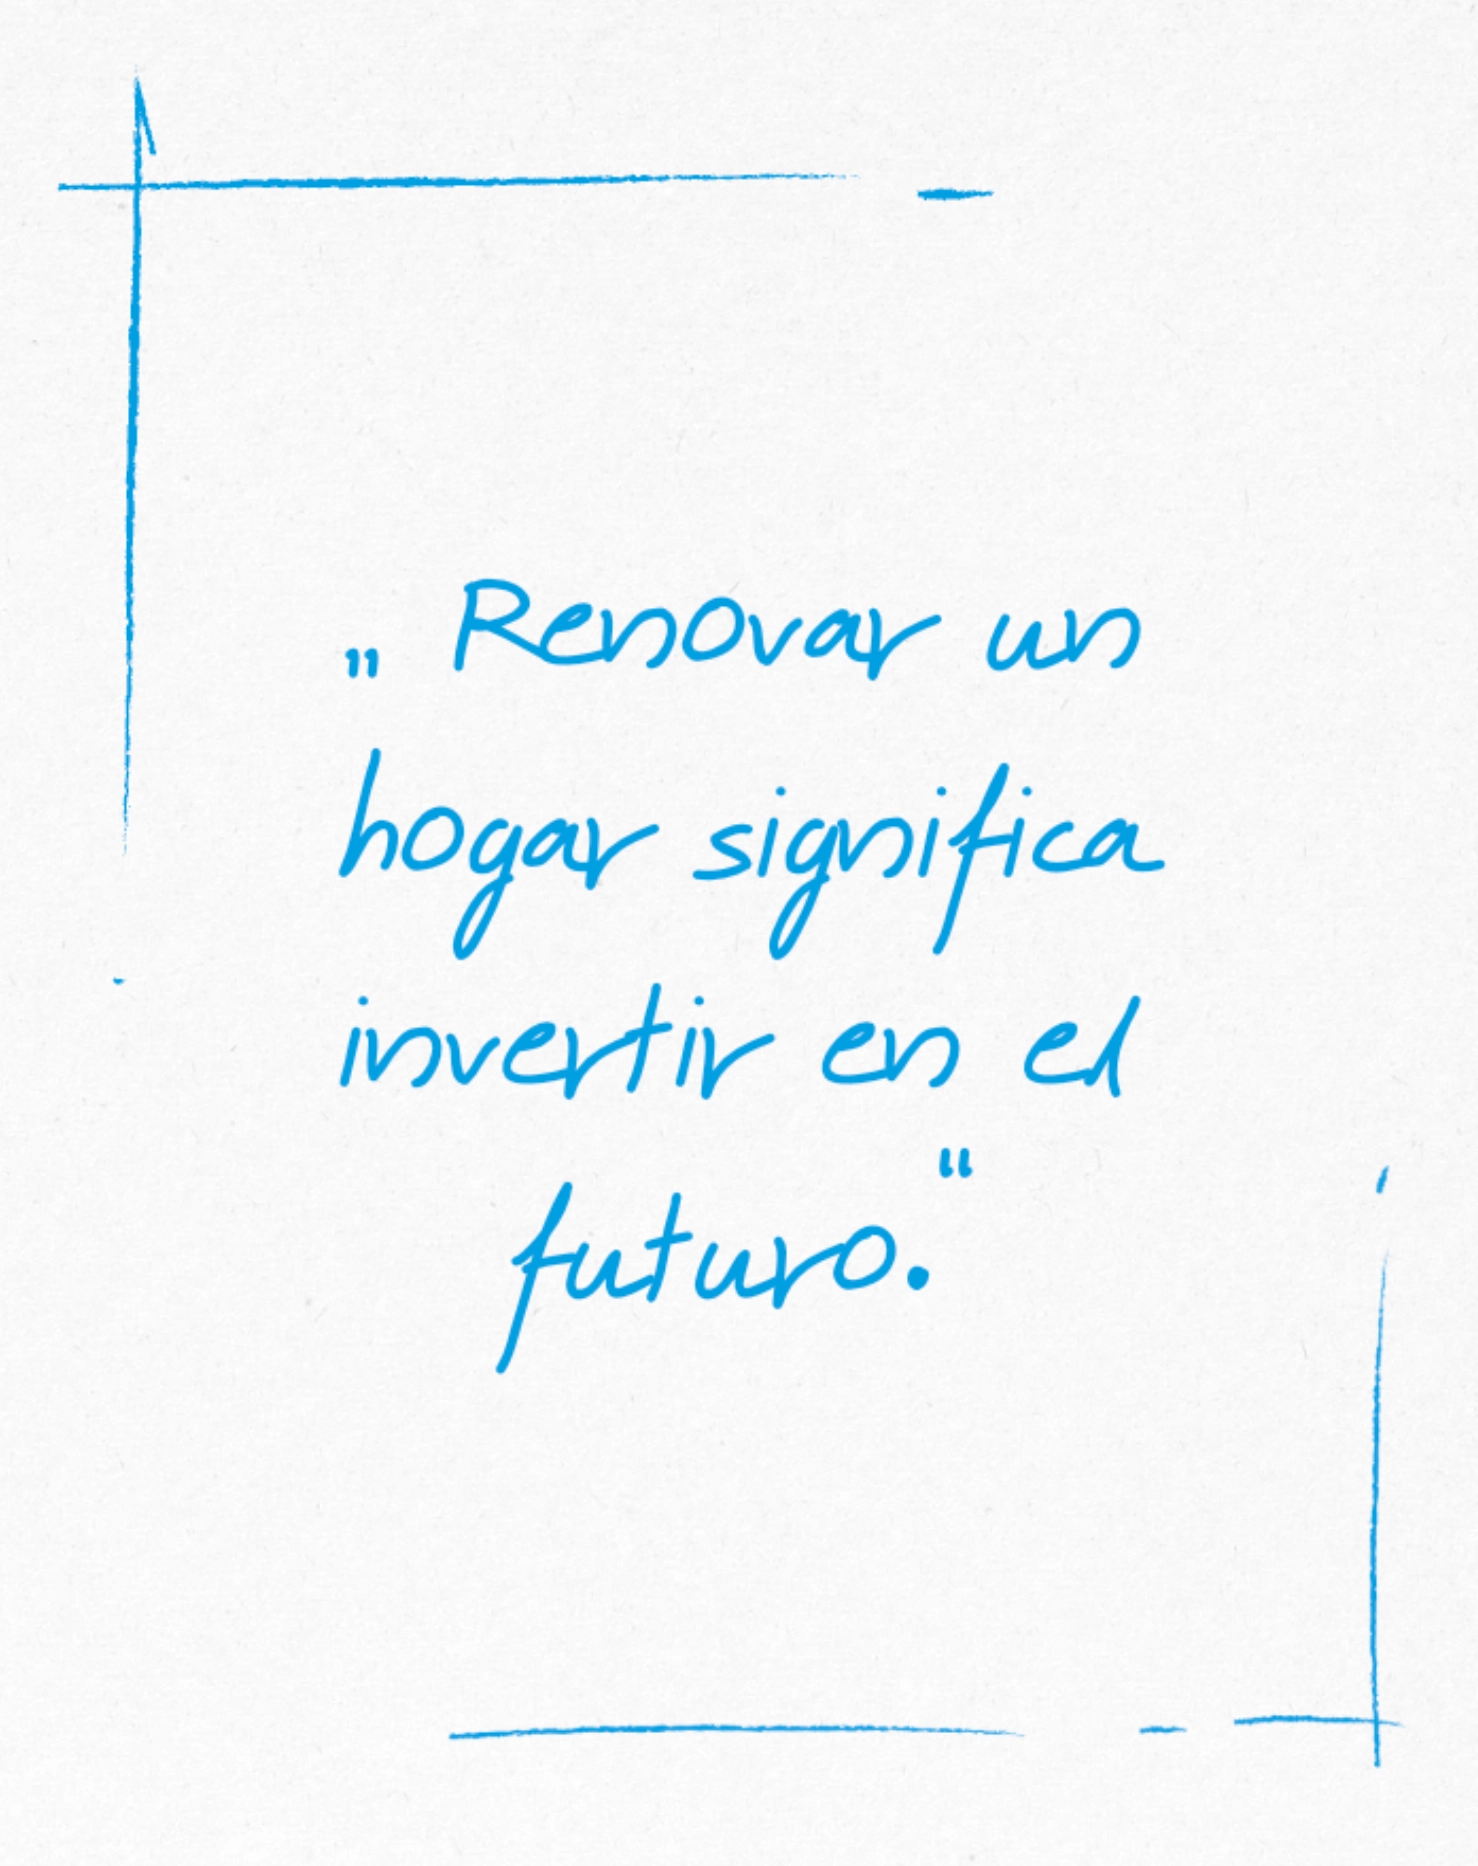 „ Renovar un
hogar significa
invertir en el
futuro.“